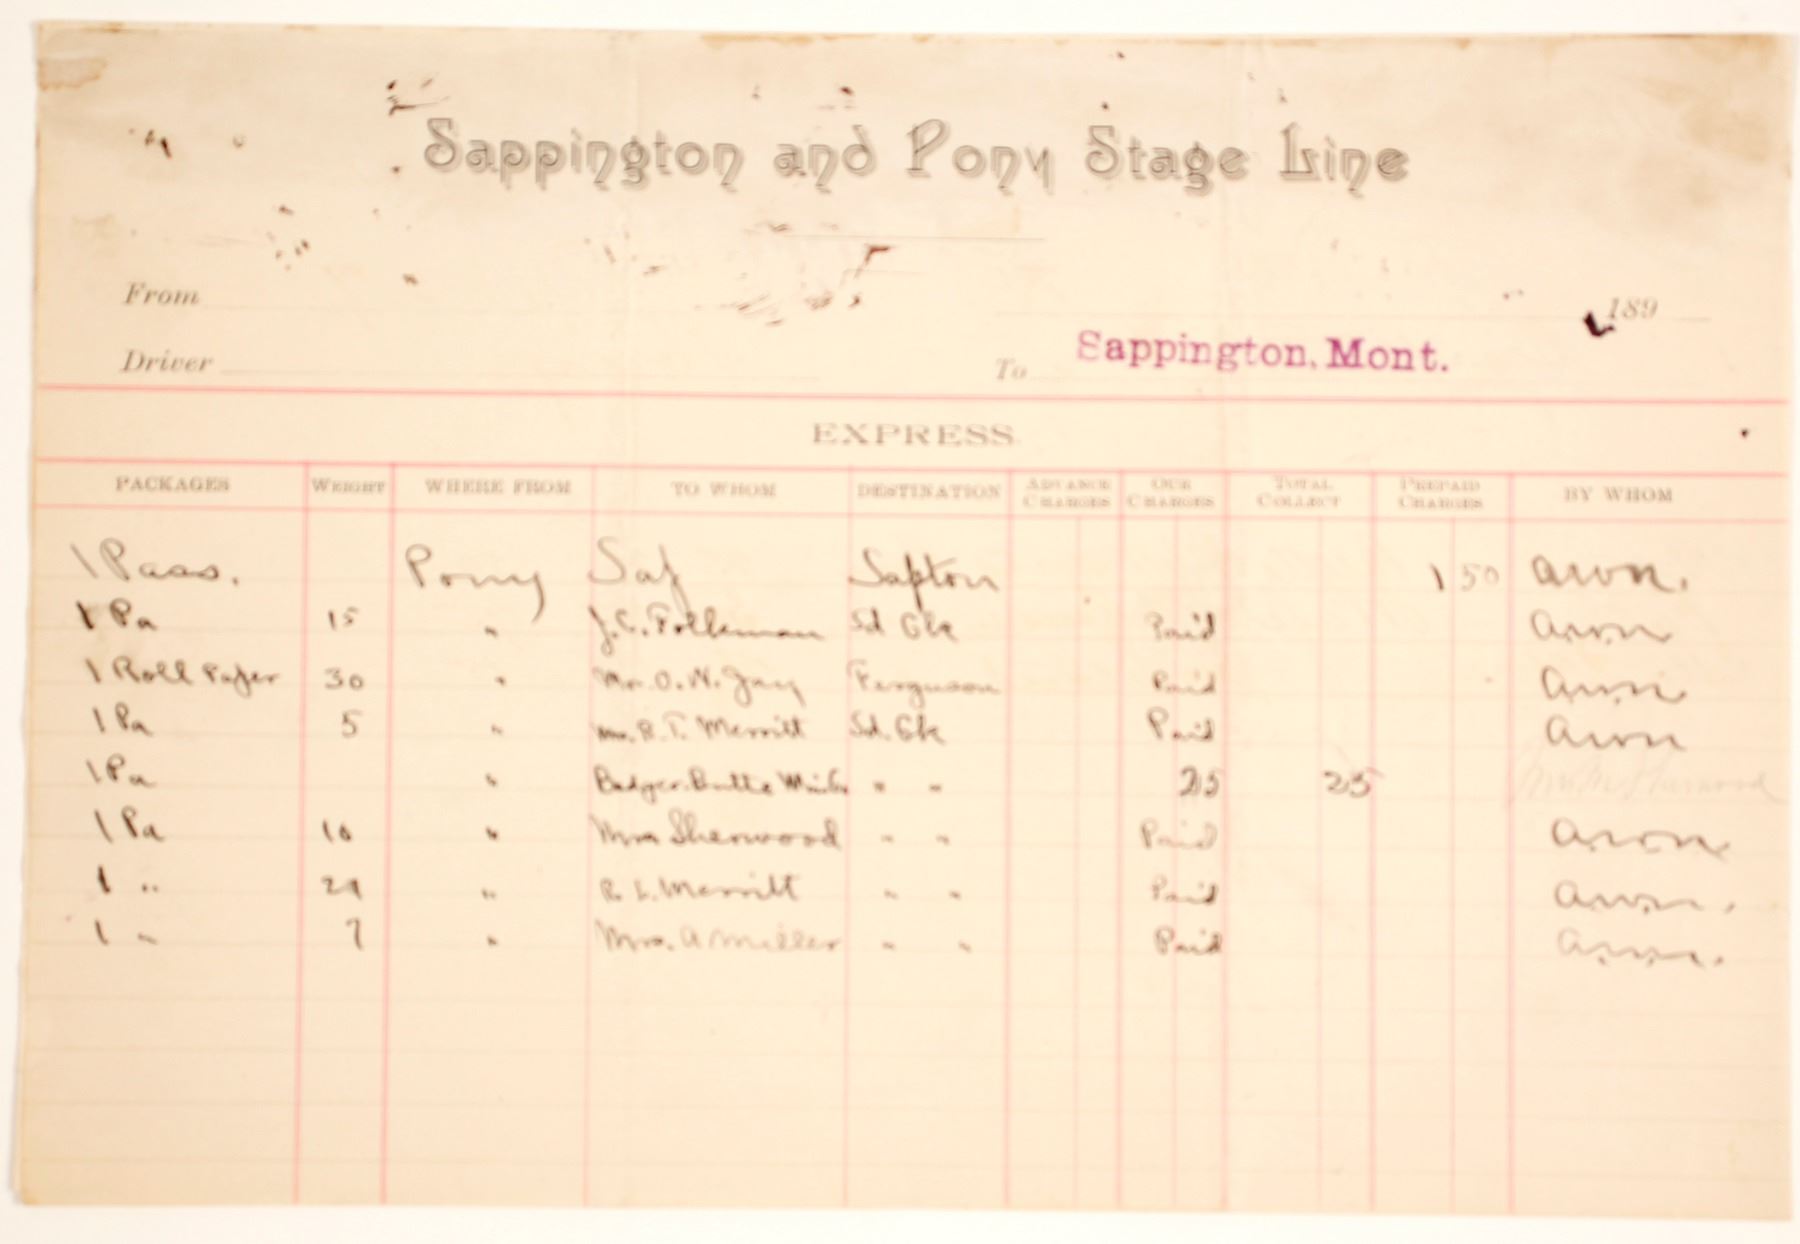 Sappington and Pony Stage Line
From 189
Driver To Sappington, Mont.
EXPRESS.
PACKAGES WEIGHT WHERE FROM TO WHOM DESTINATION ADVANCE CHARGES OUR CHARGES TOTAL COLLECT PREPAID CHARGES BY WHOM
1 Pass. Pony Sapton 1 50 awn.
1 Pa 15 " Paid awn
1 Roll Paper 30 " Mr. O. W. Jay Ferguson Paid awn
1 Pa 5 " Merritt Paid awn
1 Pa " Badger Butte " " 25 25
1 Pa 10 " Mrs Sherwood " " Paid awn.
1 " " R. L. Merritt " " Paid awn.
1 " 7 " Mrs. A Miller " " Paid awn.